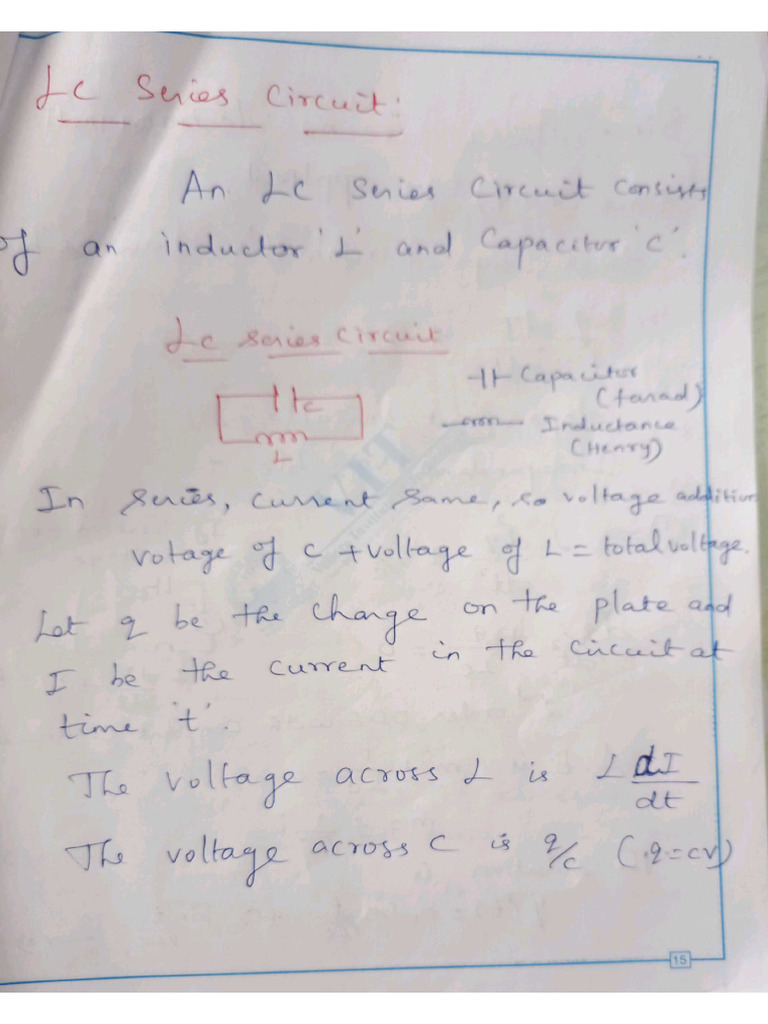 LC Series Circuit:
An LC Series Circuit consists
of an inductor 'L' and Capacitor 'C'.
LC series circuit
C
L
Capacitor
(farad)
Inductance
(Henry)
In series, current same, so voltage addition
votage of C + voltage of L = total voltage.
Let q be the charge on the plate and
I be the current in the circuit at
time 't'.
The voltage across L is L dI/dt
The voltage across C is q/c (∵q=cv)
15